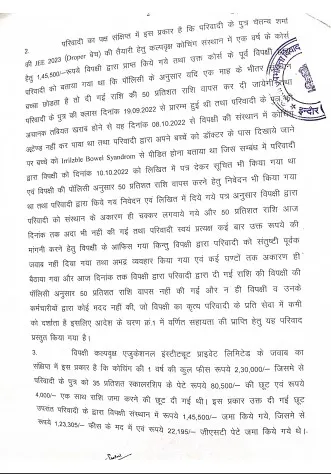 2
2. परिवादी का पक्ष संक्षिप्त में इस प्रकार है कि परिवादी के पुत्र चेतन्य शर्मा
की JEE 2023 (Droper बेच) की तैयारी हेतु कल्पवृक्ष कोचिंग संस्थान में एक वर्ष के कोर्स
हेतु 1,45,500/-रूपये विपक्षी द्वारा प्राप्त किये गये तथा उक्त कोर्स के पूर्व विपक्षी
परिवादी को बताया गया था कि पॉलिसी के अनुसार यदि एक माह के भीतर
बच्चा छोडता है तो दी गई राशि की 50 प्रतिशत राशि वापस कर दी जायेगी तथा
परिवादी के पुत्र की क्लास दिनांक 19.09.2022 से प्रारम्भ हुई थी तथा परिवादी के पुत्र की
अचानक तबियत खराब होने से वह दिनांक 08.10.2022 से विपक्षी की संस्थान में कोचिंग
अटेण्ड नहीं कर पाया था तथा परिवादी द्वारा अपने बच्चे को डॉक्टर के पास दिखाये जाने
पर बच्चे को Irritable Bowel Syandrom से पीडित होना बताया था जिस सम्बंध में परिवादी
द्वारा विपक्षी को दिनांक 10.10.2022 को लिखित में पत्र देकर सूचित भी किया गया था
एवं विपक्षी की पॉलिसी अनुसार 50 प्रतिशत राशि वापस करने हेतु निवेदन भी किया गया
था तथा परिवादी द्वारा किये गये निवेदन एवं लिखित में दिये गये पत्र अनुसार विपक्षी द्वारा
परिवादी को संस्थान के अकारण ही चक्कर लगवाये गये और 50 प्रतिशत राशि आज
दिनांक तक अदा भी नही की गई तथा परिवादी स्वयं प्रत्यक्ष कई बार उक्त रूपये की
मांगनी करने हेतु विपक्षी के आफिस गया किन्तु विपक्षी द्वारा परिवादी को संतुष्टी पूर्वक
जवाब नहीं दिया गया तथा अभद्र व्यवहार किया गया एवं कई घण्टों तक अकारण ही
बैठाया गया और आज दिनांक तक विपक्षी द्वारा परिवादी द्वारा दी गई राशि की विपक्षी की
पॉलिसी अनुसार 50 प्रतिशत राशि वापस नही की गई और न ही विपक्षी व उनके
कर्मचारियों द्वारा कोई मदद नही की, जो विपक्षी का कृत्य परिवादी के प्रति सेवा में कमी
को दर्शाता है इसलिए आदेश के चरण क्रं.1 में वर्णित सहायता की प्राप्ति हेतु यह परिवाद
प्रस्तुत किया गया है।
3. विपक्षी कल्पवृक्ष एजुकेशनल इंस्टीट्यूट प्राइवेट लिमिटेड के जवाब का
संक्षिप्त में इस प्रकार है कि कोचिंग की 1 वर्ष की कुल फीस रूपये 2,30,000/– जिसमे से
परिवादी के पुत्र को 35 प्रतिशत स्कालरशिप के पेटे रूपये 80,500/– की छूट एवं रूपये
4,000/– एक साथ राशि जमा करने की छूट दी गई थी। इस प्रकार उक्त दी गई छूट
उपरांत परिवादी के द्वारा विपक्षी संस्थान में रूपये 1,45,500/– जमा किये गये, जिसमे से
रूपये 1,23,305/– फीस के मद में एवं रूपये 22,195/– जीएसटी पेटे जमा किये गये थे।
इन्दौर